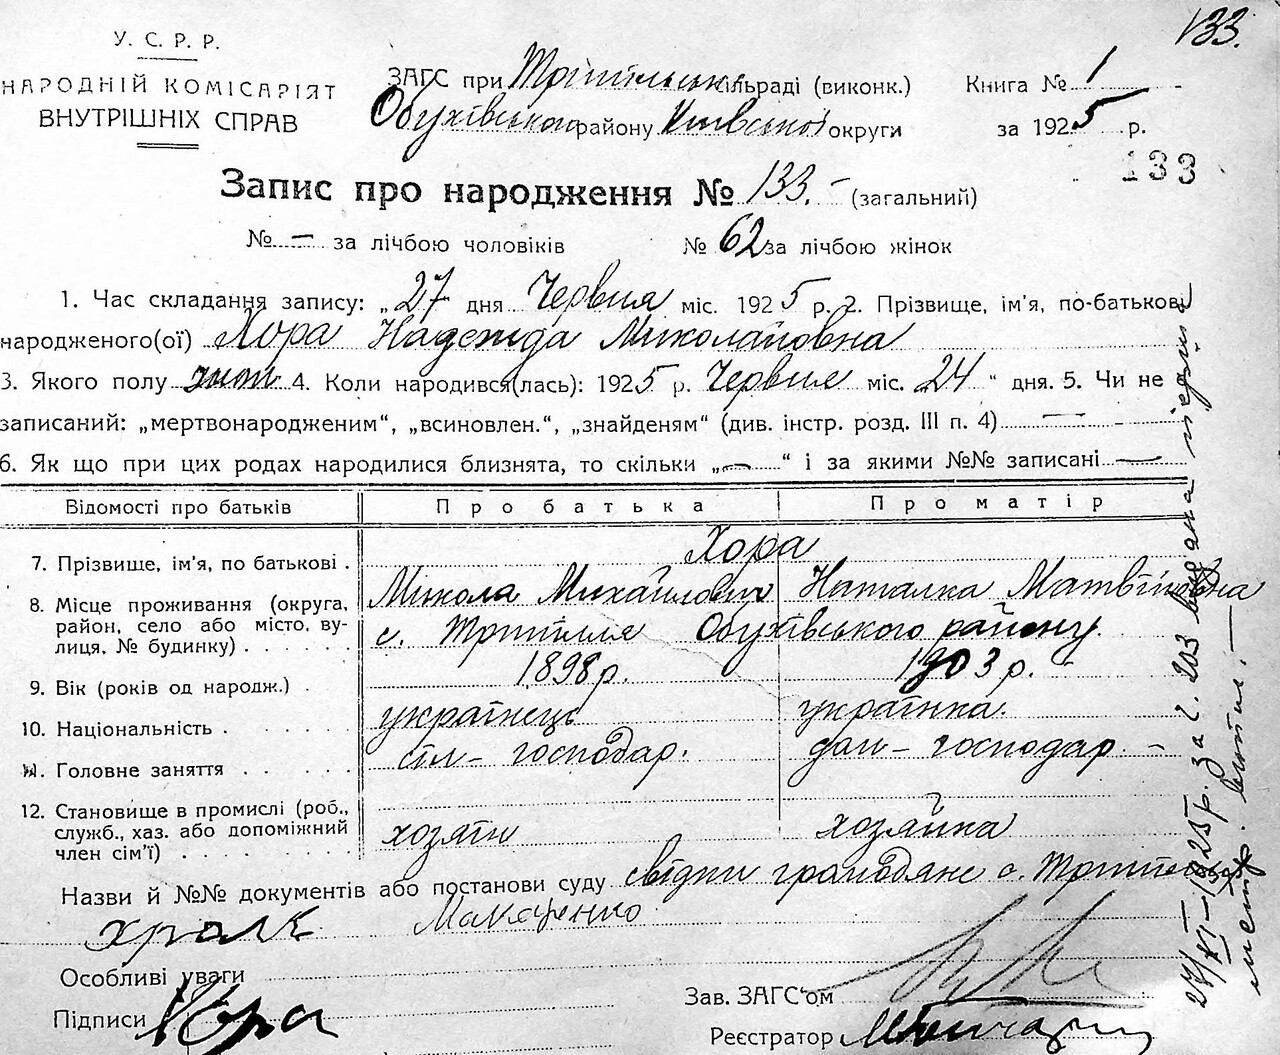 133.
У. С. Р. Р.
НАРОДНІЙ КОМІСАРІЯТ
ВНУТРІШНІХ СПРАВ
ЗАГС при Трипільськ сільраді (виконк.)
Обухівського району Київської округи
Книга № 1
за 1925 р.
133
Запис про народження № 133.- (загальний)
№ — за лічбою чоловіків № 62 за лічбою жінок
1. Час складання запису: „27 дня Червня міс. 1925 р. 2. Прізвище, ім'я, по-батькові
народженого(ої) Хора Надежда Миколаївна
3. Якого полу жіноч 4. Коли народився(лась): 1925 р. Червня міс. 24 " дня. 5. Чи не
записаний: „мертвонародженим", „всиновлен.", „знайденям" (див. інстр. розд. III п. 4) —
6. Як що при цих родах народилися близнята, то скільки „—" і за якими №№ записані —
Відомості про батьків Про батька Про матір
7. Прізвище, ім'я, по батькові . Хора
Микола Михайлович Наталка Матвіївна
8. Місце проживання (округа, район, село або місто, вулиця, № будинку) . с. Трипілля Обухівського району.
9. Вік (років од народж.) . 1898 р. 1903 р. -
10. Національність . українець українка.
11. Головне заняття . сіл- господар. дом- господар -
12. Становище в промислі (роб., служб., хаз. або допоміжний член сім'ї) . хозяїн хозяйка
Назви й №№ документів або постанови суду свідки громадяне с. Трипілля
Макаренко
Особливі уваги
Підписи Хора
Зав. ЗАГС'ом
Реєстратор
27/XI-1925 р. за ч. 203 видана перша
метр. витяг. —